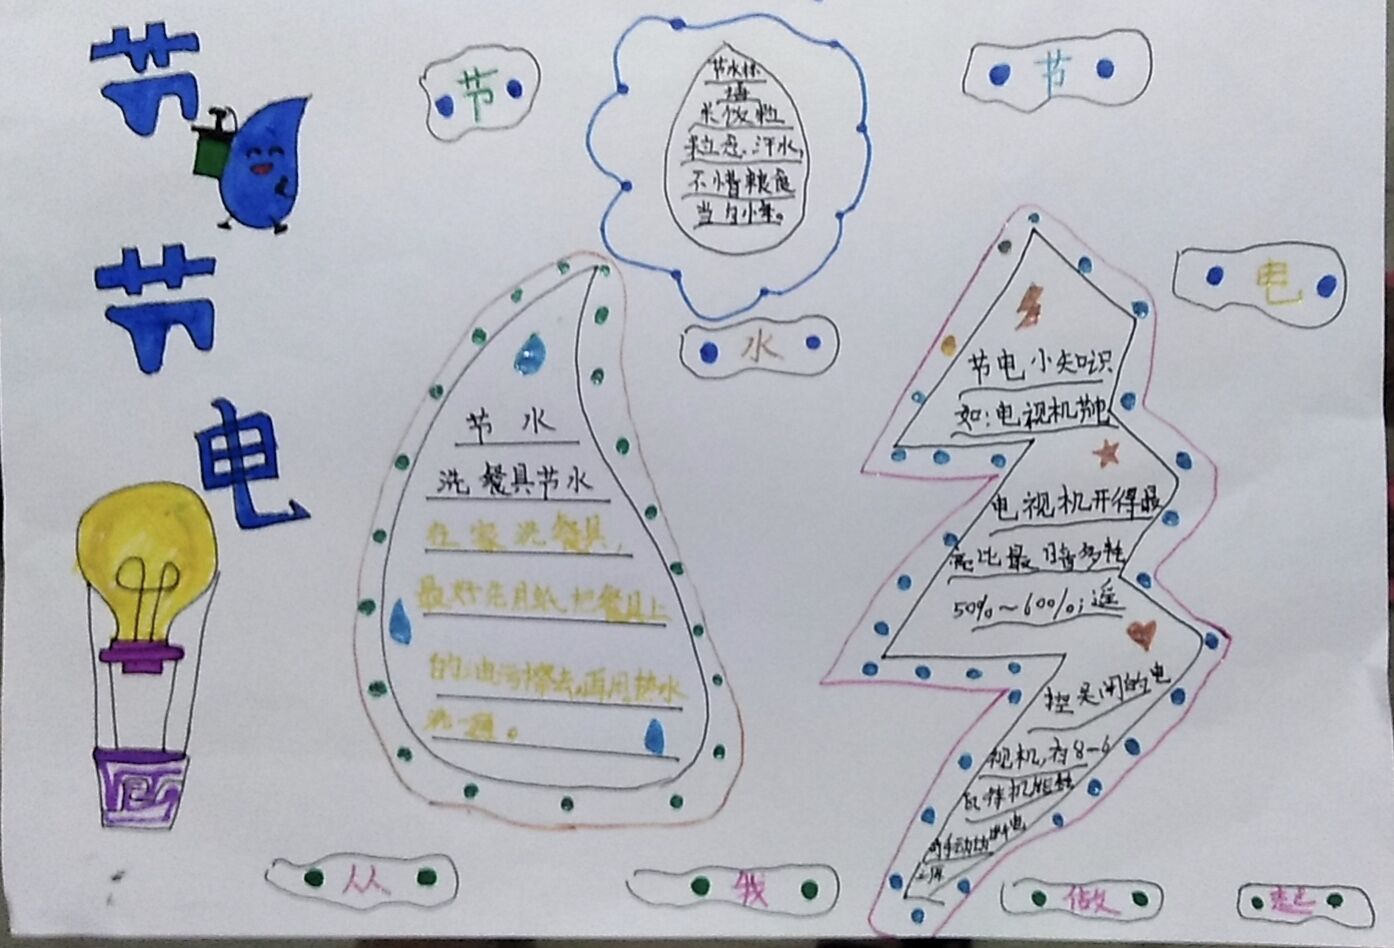 节
节
电
节
水
节
电
节水标
语
米饭粒
粒忍、汗水,
不惜粮食
当自小年。
节水
洗餐具节水
在家洗餐具,
最好先用纸把餐具上
的油污擦去,再用热水
洗一遍。
节电小知识
如:电视机节电
电视机开得最
亮比最暗多耗
50%~60%;遥
控关闭的电
视机,有8-6
从
我
做
起